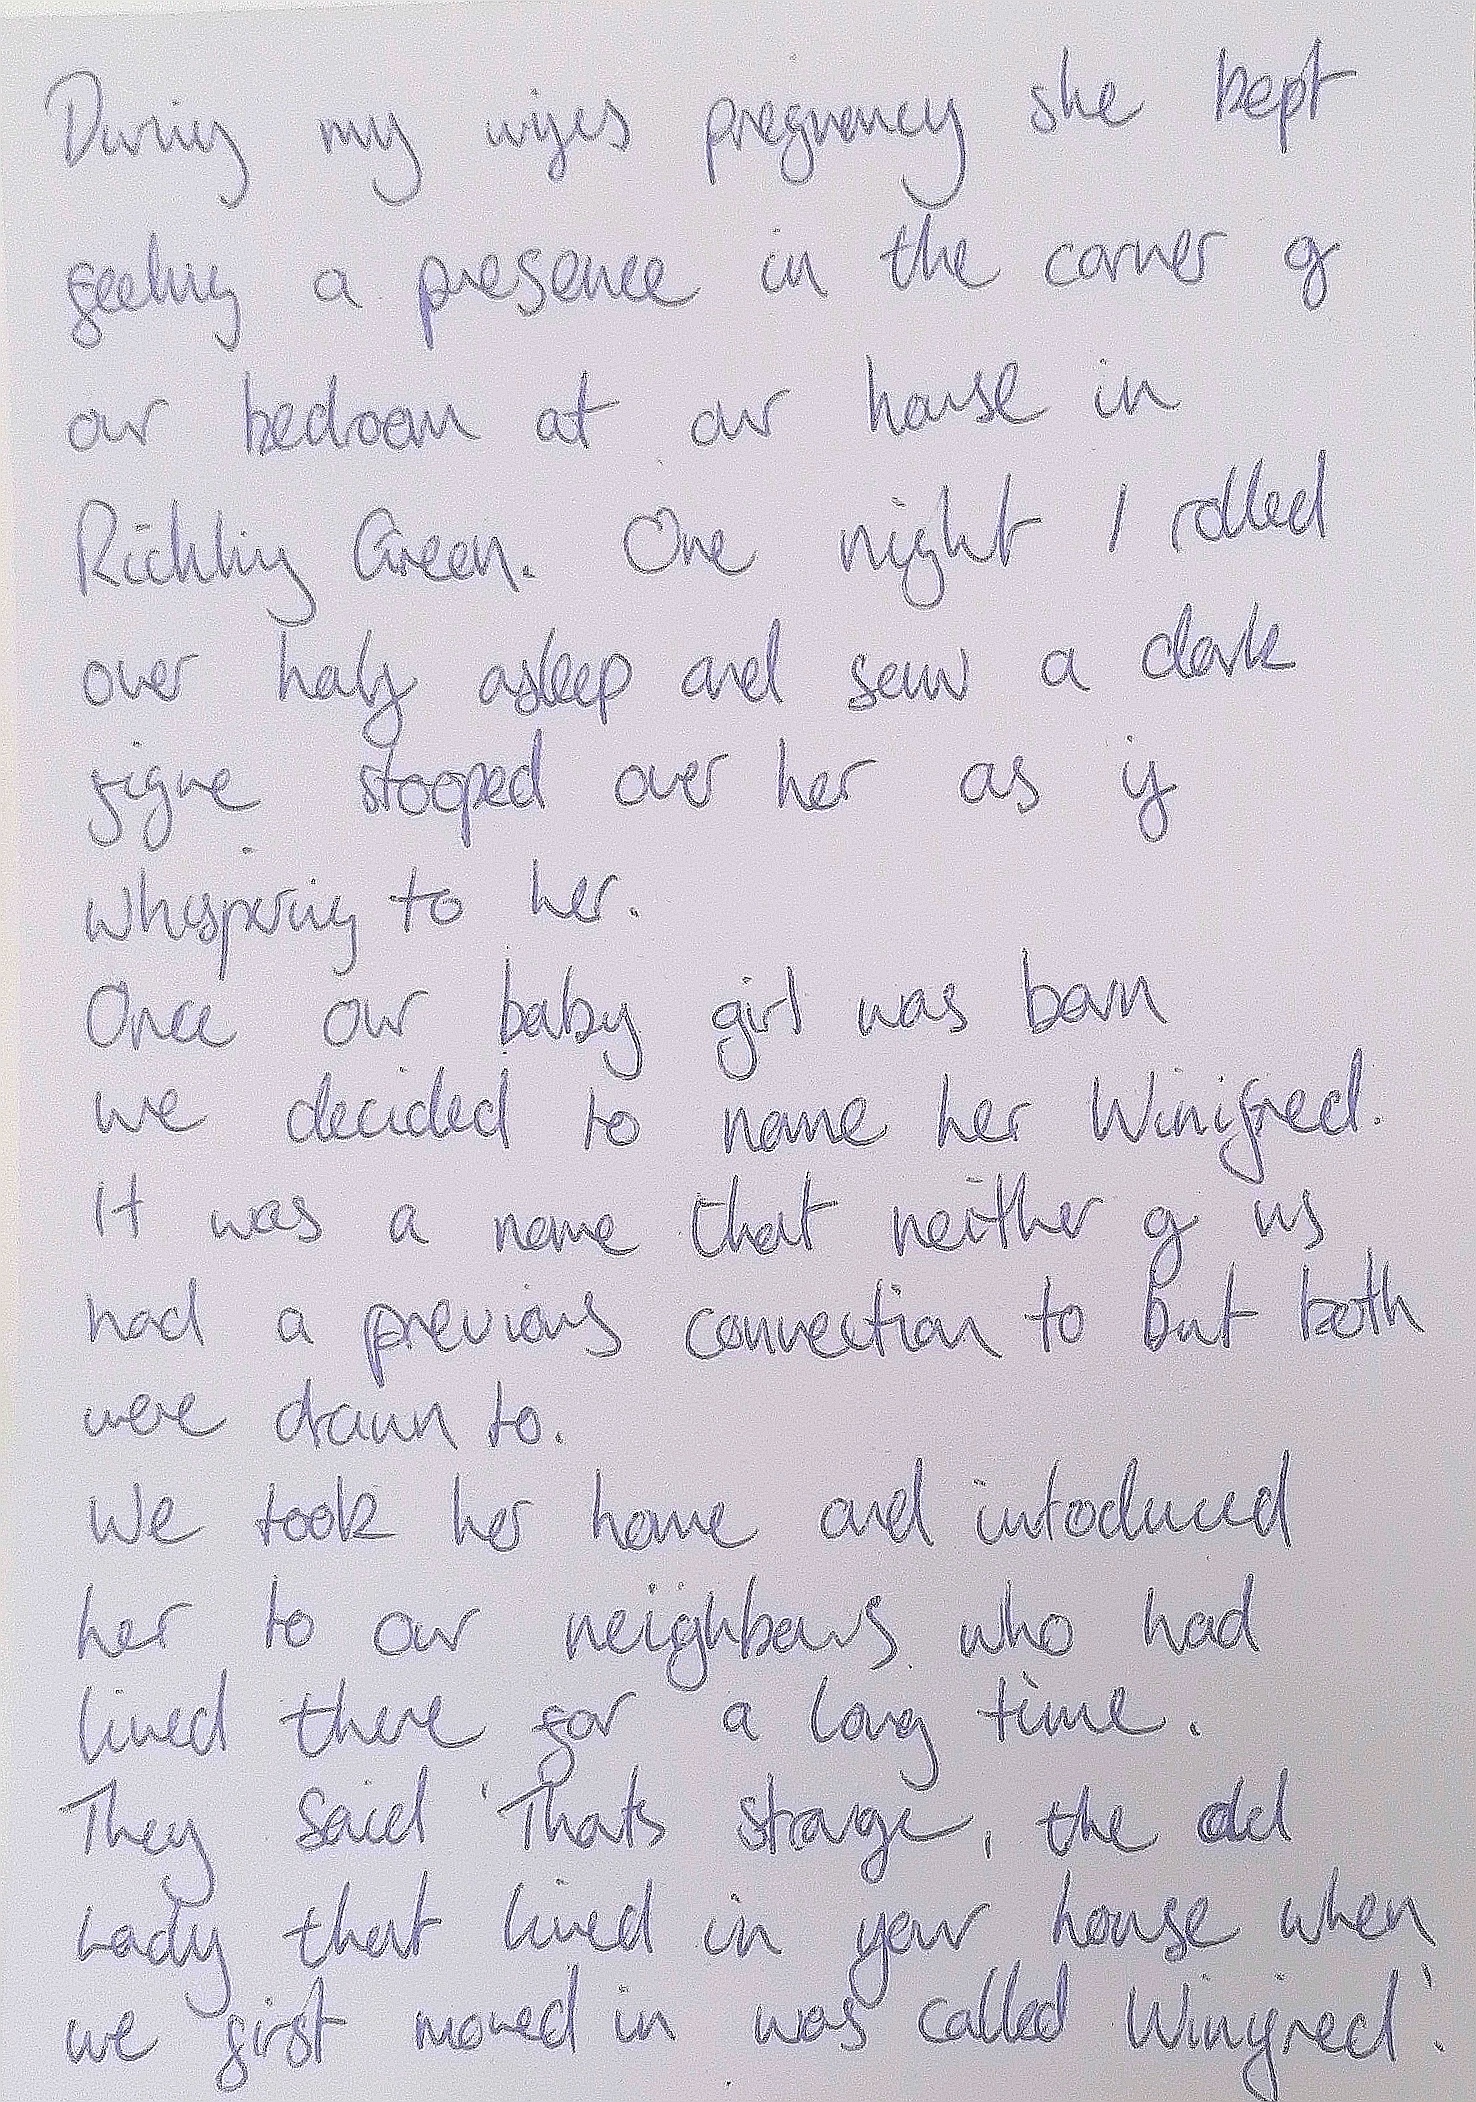 During my wifes pregnancy she kept
feeling a presence in the corner of
our bedroom at our house in
Rickling Green. One night I rolled
over half asleep and saw a dark
figure stooped over her as if
whispering to her.
Once our baby girl was born
we decided to name her Winifred.
It was a name that neither of us
had a previous connection to but both
were drawn to.
We took her home and intoduced
her to our neighbours who had
lived there for a long time.
They said 'Thats strange, the old
Lady that lived in your house when
we first moved in was called Winifred'.